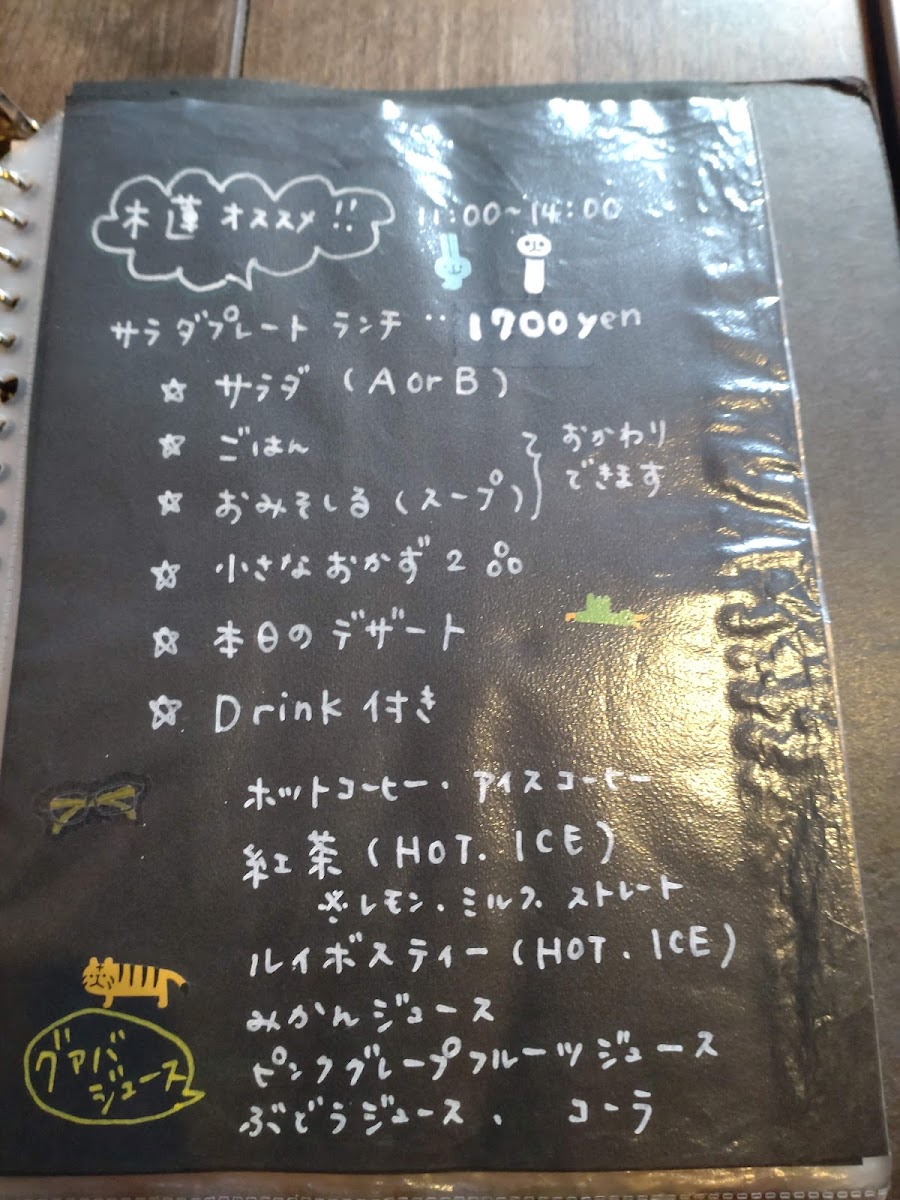 木蓮オススメ!! 11:00~14:00
サラダプレートランチ ‥ 1700yen
☆ サラダ (A or B)
☆ ごはん
☆ おみそしる (スープ)
おかわり
できます
☆ 小さなおかず2品
☆ 本日のデザート
☆ Drink 付き
ホットコーヒー・アイスコーヒー
紅茶 (HOT. ICE)
※レモン、ミルク、ストレート
ルイボスティー (HOT. ICE)
みかんジュース
ピンクグレープフルーツジュース
ぶどうジュース、 コーラ
グァバ
ジュース